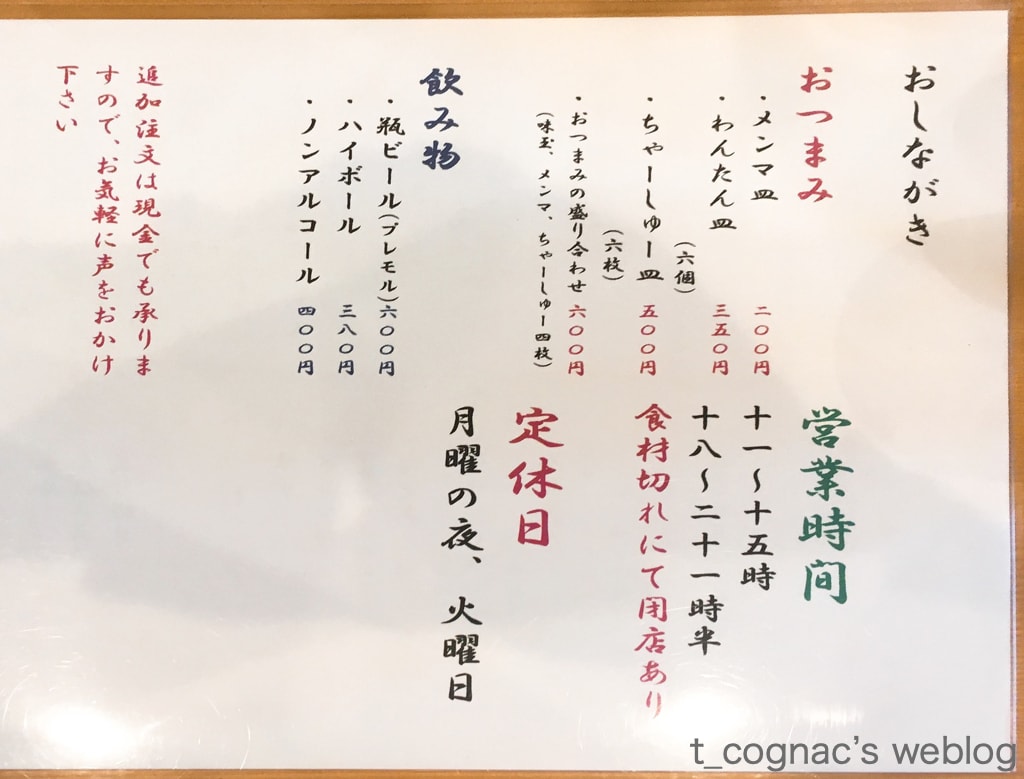 おしながき
おつまみ
・メンマ皿 二〇〇円
・わんたん皿 三五〇円
(六個)
・ちゃーしゅー皿 五〇〇円
(六枚)
・おつまみの盛り合わせ 六〇〇円
(味玉、メンマ、ちゃーしゅー四枚)
飲み物
・瓶ビール(プレモル)六〇〇円
・ハイボール 三八〇円
・ノンアルコール 四〇〇円
追加注文は現金でも承りま
すので、お気軽に声をおかけ
下さい
営業時間
十一〜十五時
十八〜二十一時半
食材切れにて閉店あり
定休日
月曜の夜、火曜日
t_cognac's weblog